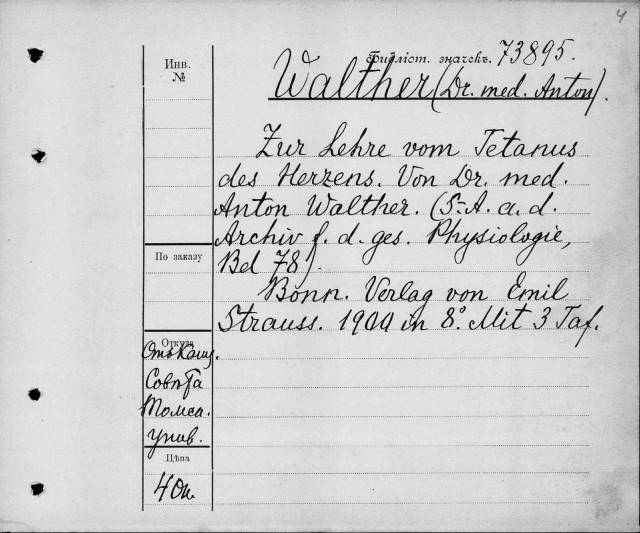 4
Инв.
№
Библіот. значекъ. 73895.
Walther (Dr. med. Anton).
Zur Lehre vom Tetanus
des Herzens. Von Dr. med.
Anton Walther. (S.-A. a. d.
Archiv f. d. ges. Physiologie,
Bd 78).
Bonn. Verlag von Emil
Strauss. 1900 in 8°. Mit 3 Taf.
По заказу
Откуда
Отъ Канц.
Совѣта
Томск.
унив.
Цѣна
40к.